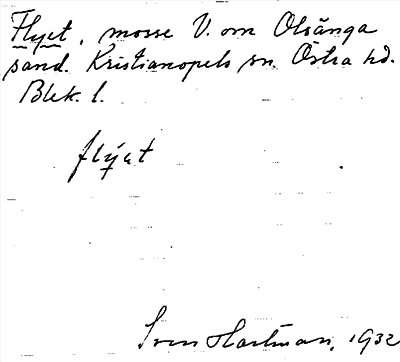 Flyet, mosse V. om Olsänga
sand. Kristianopels sn. Östra hd.
Blek. l.
flyat
Sven Hartman, 1932